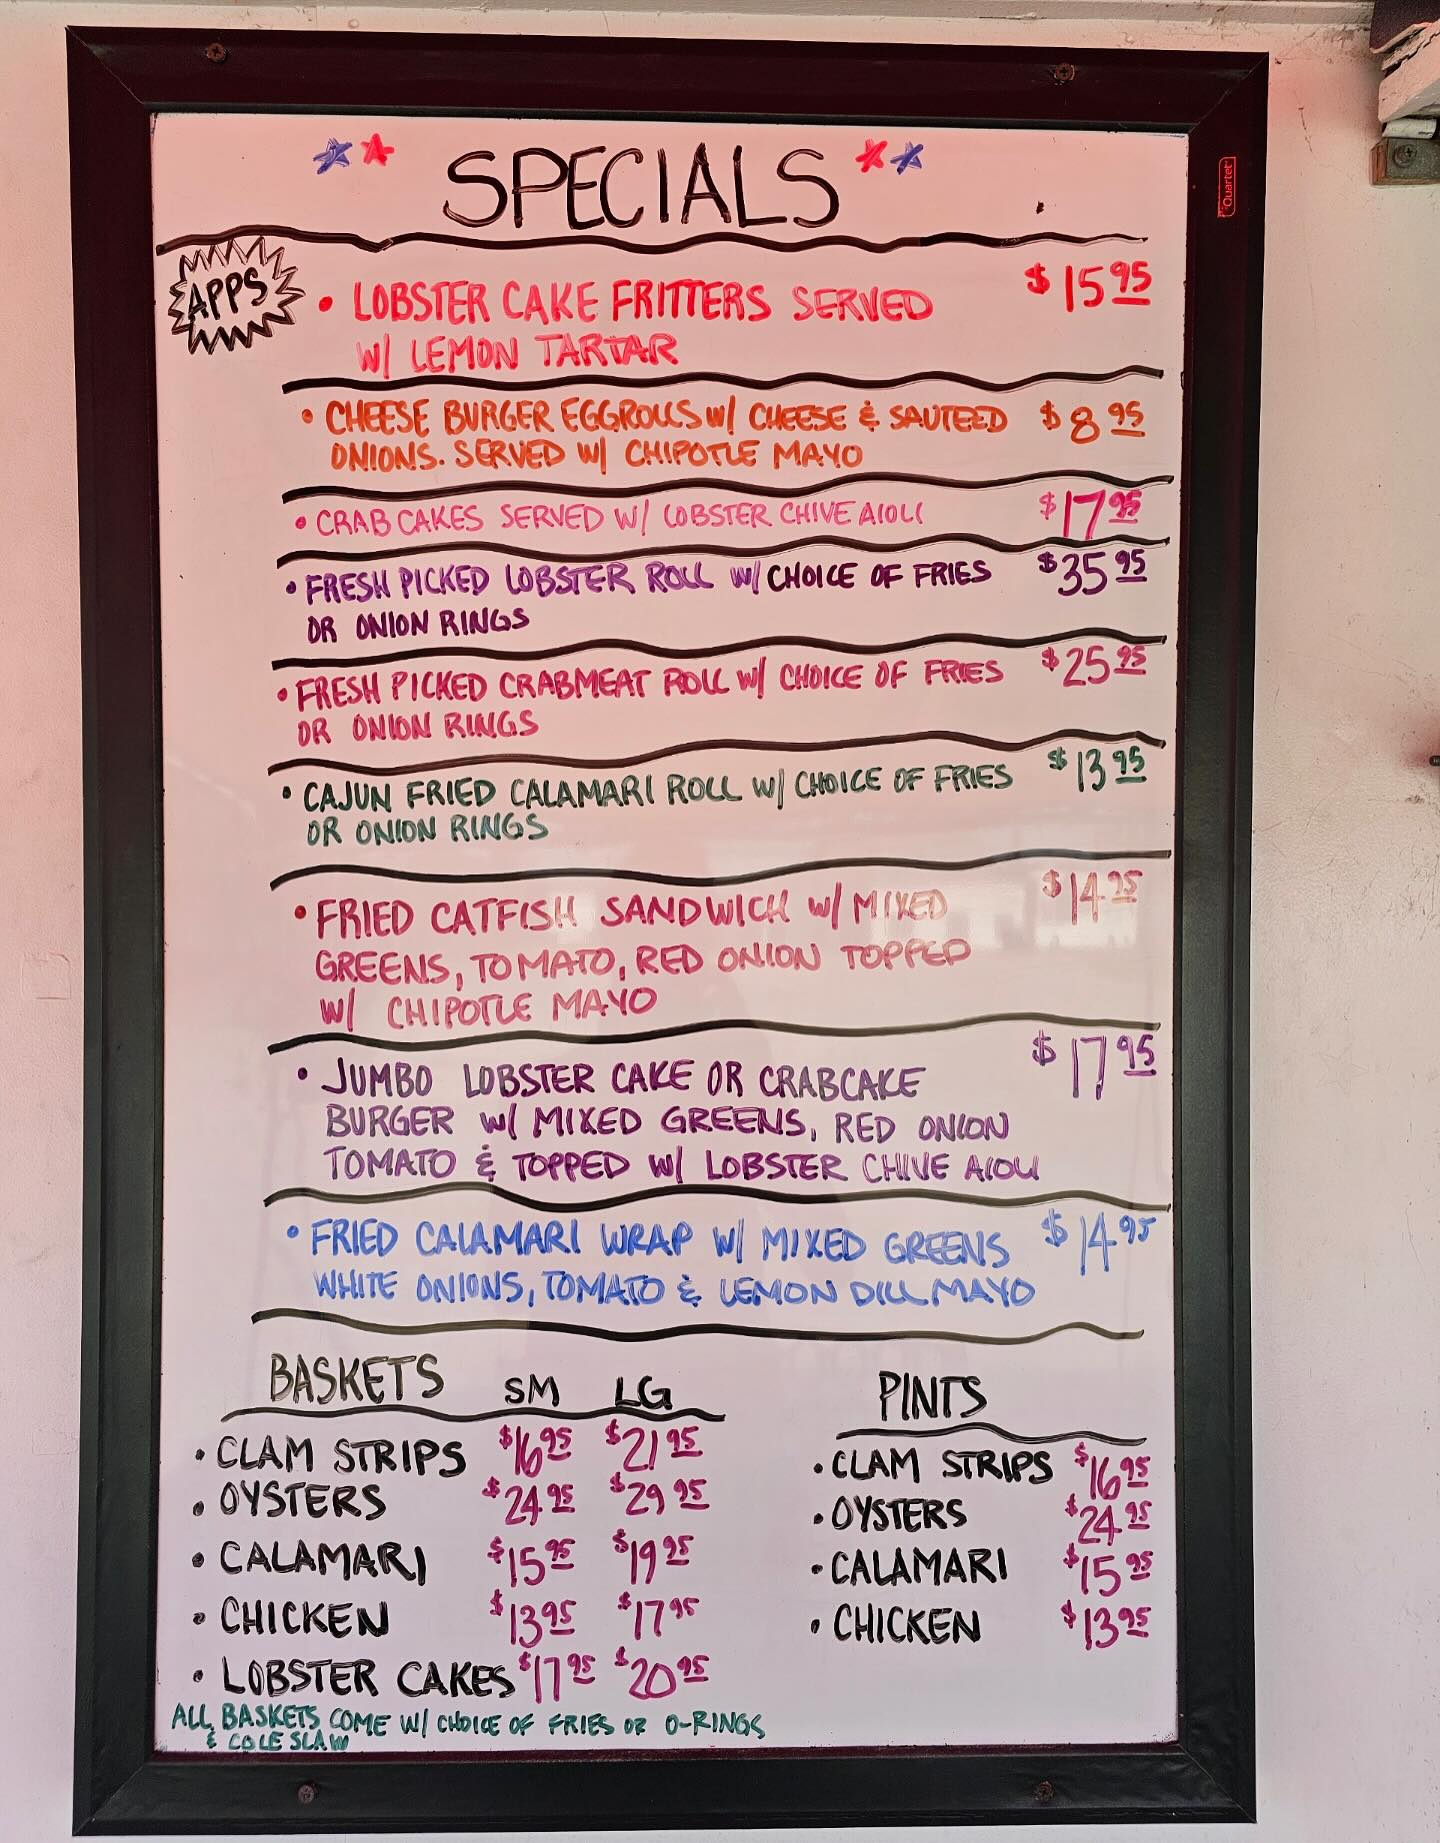 SPECIALS
Quartet
APPS
• LOBSTER CAKE FRITTERS SERVED $15.95
W/ LEMON TARTAR
• CHEESE BURGER EGGROLLS W/ CHEESE & SAUTEED $8.95
ONIONS. SERVED W/ CHIPOTLE MAYO
• CRAB CAKES SERVED W/ LOBSTER CHIVE AIOLI $17.95
• FRESH PICKED LOBSTER ROLL W/ CHOICE OF FRIES $35.95
OR ONION RINGS
• FRESH PICKED CRABMEAT ROLL W/ CHOICE OF FRIES $25.95
OR ONION RINGS
• CAJUN FRIED CALAMARI ROLL W/ CHOICE OF FRIES $13.95
OR ONION RINGS
• FRIED CATFISH SANDWICH W/ MIXED $14.95
GREENS, TOMATO, RED ONION TOPPED
W/ CHIPOTLE MAYO
• JUMBO LOBSTER CAKE OR CRABCAKE $17.95
BURGER W/ MIXED GREENS, RED ONION
TOMATO & TOPPED W/ LOBSTER CHIVE AIOLI
• FRIED CALAMARI WRAP W/ MIXED GREENS $14.95
WHITE ONIONS, TOMATO & LEMON DILL MAYO
BASKETS SM LG
• CLAM STRIPS $16.95 $21.95
• OYSTERS $24.95 $29.95
• CALAMARI $15.95 $19.95
• CHICKEN $13.95 $17.95
• LOBSTER CAKES $17.95 $20.95
ALL BASKETS COME W/ CHOICE OF FRIES OR O-RINGS
& COLE SLAW
PINTS
• CLAM STRIPS $16.95
• OYSTERS $24.95
• CALAMARI $15.95
• CHICKEN $13.95